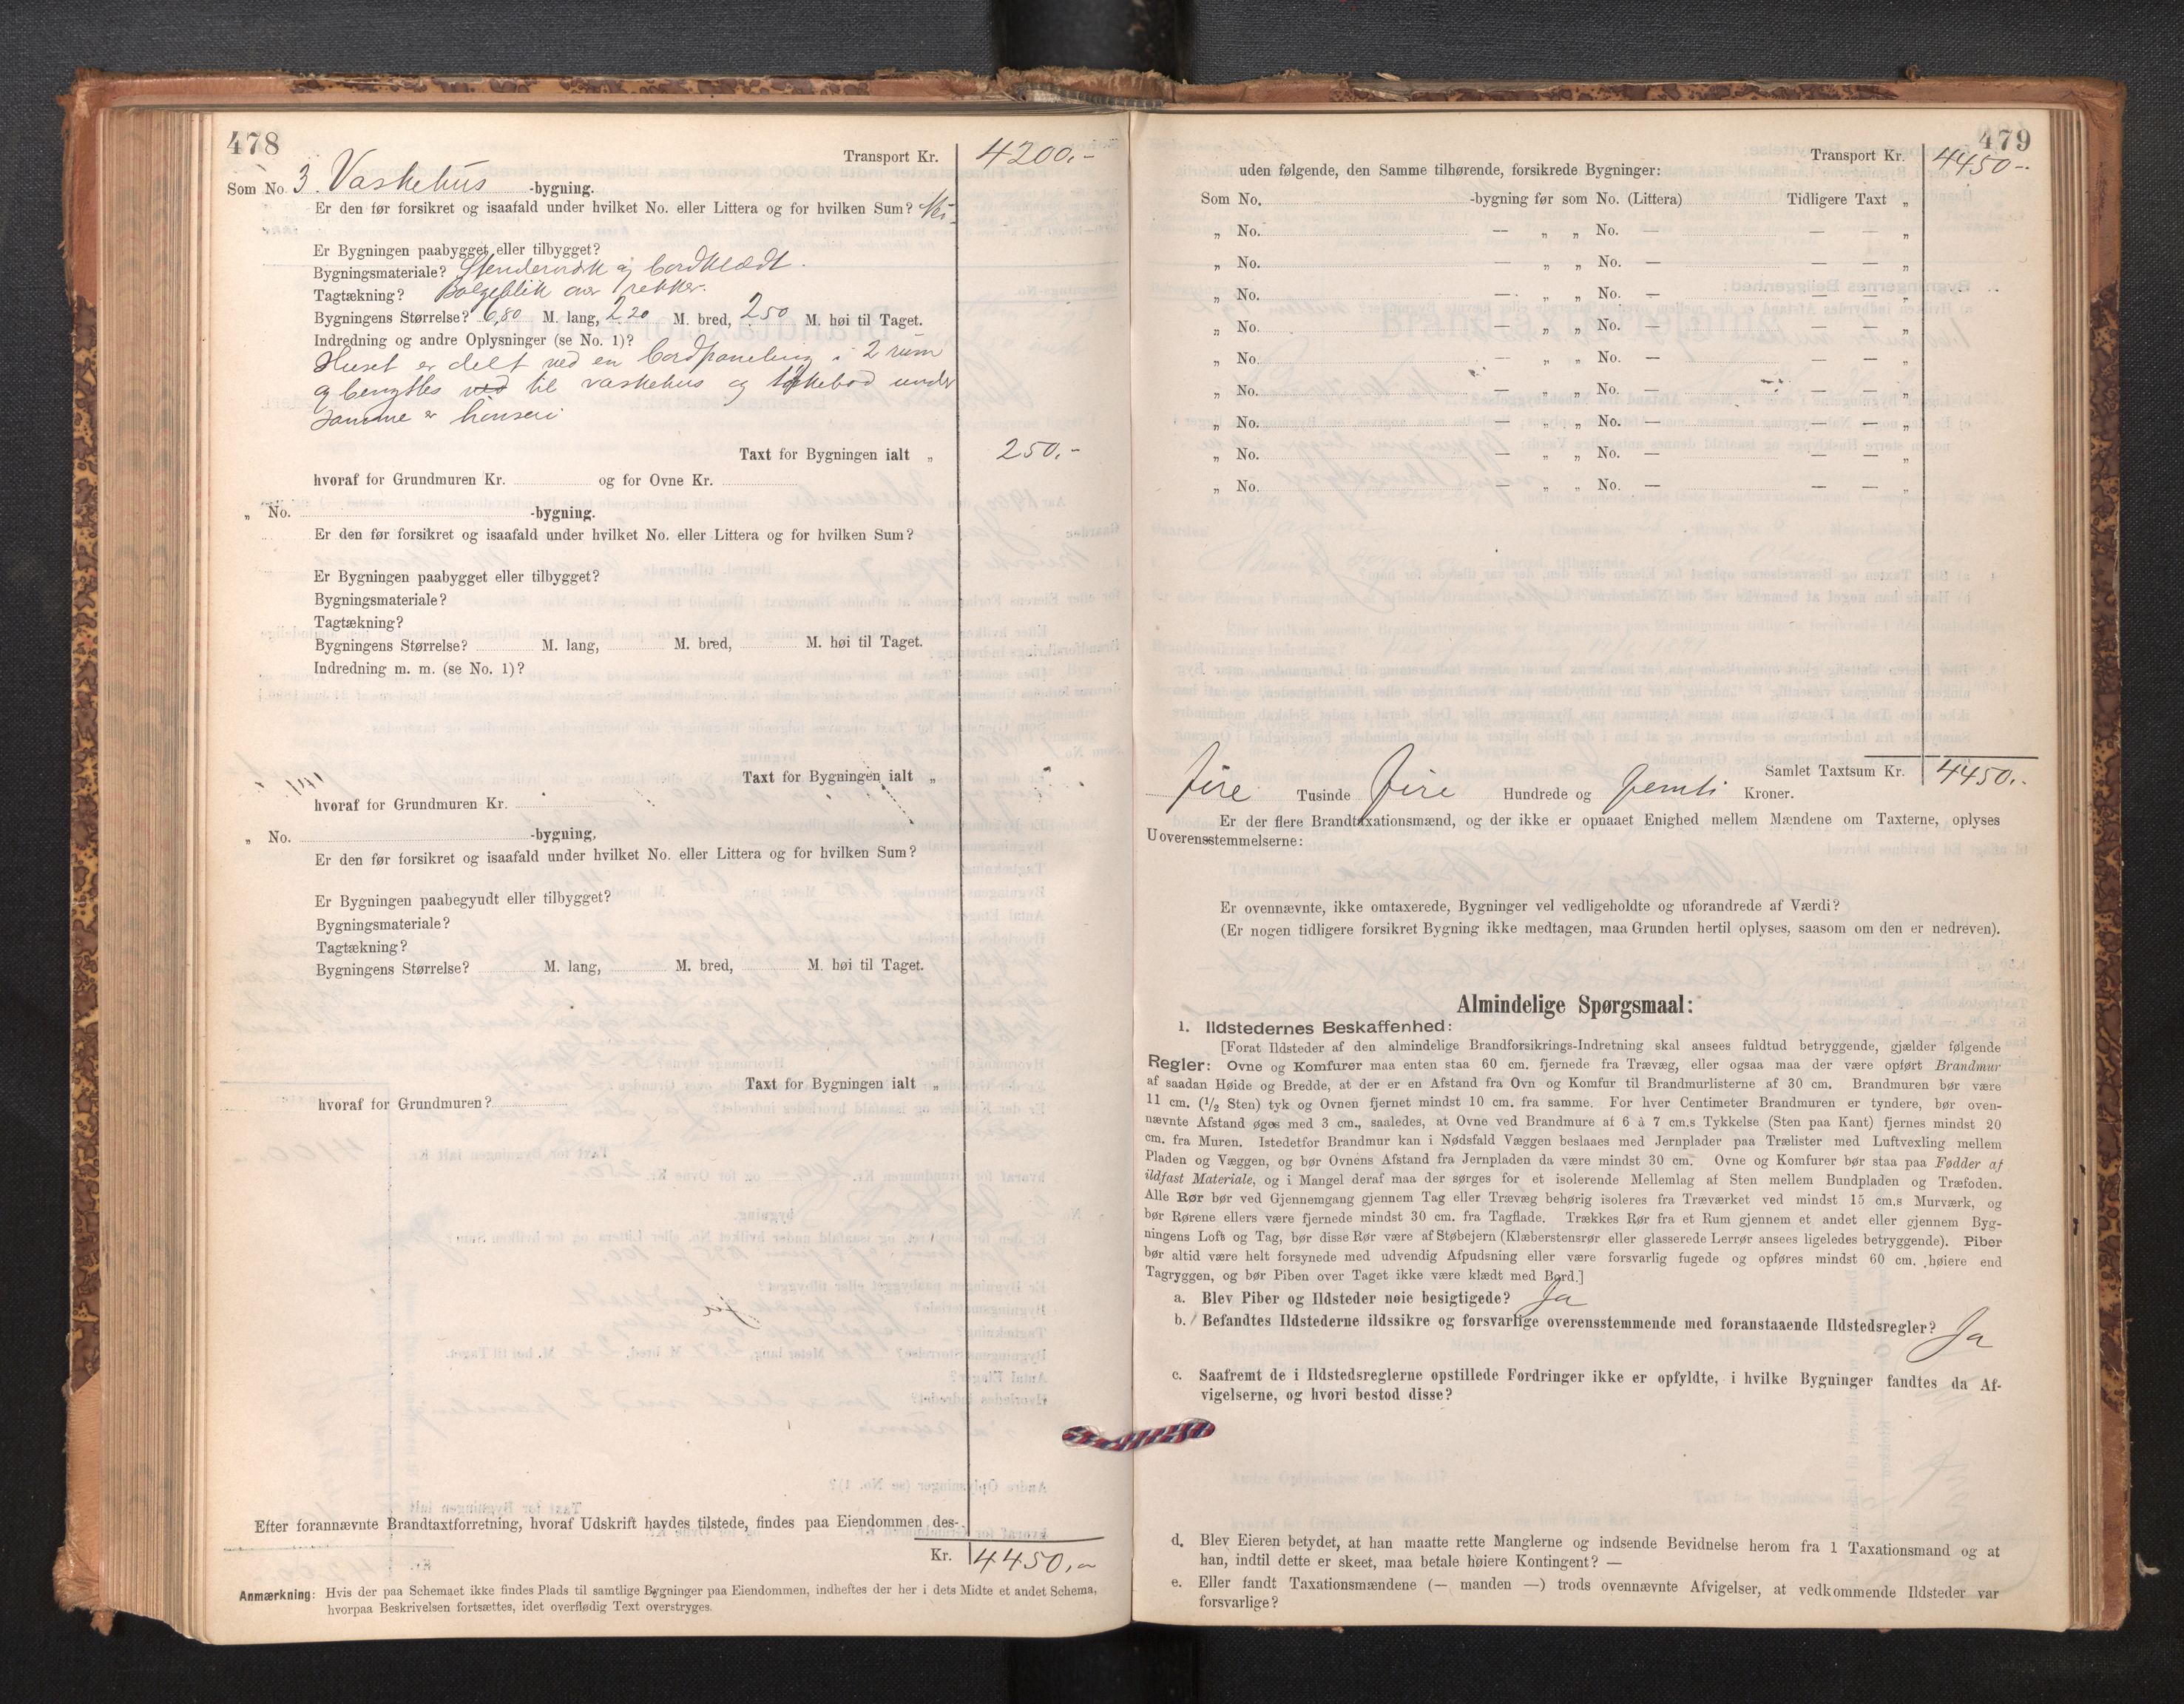 478
Transport Kr. 4200,-
Som No. 3. Vaskehus -bygning.
Er den før forsikret og isaafald under hvilket No. eller Littera og for hvilken Sum?
Er Bygningen paabygget eller tilbygget?
Bygningsmateriale? Stenderværk og bordklædt.
Tagtækning? Bølgeblik over rekker.
Bygningens Størrelse? 6,80 M. lang, 2 20 M. bred, 2 50 M. høi til Taget.
Indredning og andre Oplysninger (se No. 1)?
Huset er delt ved en bordpaneling i 2 rum
og benyttes ved til vaskehus og under
samme er hønseri
Taxt for Bygningen ialt „ 250,-
hvoraf for Grundmuren Kr. og for Ovne Kr.
„ No. -bygning.
Er den før forsikret og isaafald under hvilket No. eller Littera og for hvilken Sum?
Er Bygningen paabygget eller tilbygget?
Bygningsmateriale?
Tagtækning?
Bygningens Størrelse? M. lang, M. bred, M. høi til Taget.
Indredning m. m. (se No. 1)?
Taxt for Bygningen ialt „
hvoraf for Grundmuren Kr.
„ No. -bygning.
Er den før forsikret og isaafald under hvilket No. eller Littera og for hvilken Sum?
Er Bygningen paabegyudt eller tilbygget?
Bygningsmateriale?
Tagtækning?
Bygningens Størrelse? M. lang, M. bred, M. høi til Taget.
Taxt for Bygningen ialt „
hvoraf for Grundmuren?
Efter forannævnte Brandtaxtforretning, hvoraf Udskrift havdes tilstede, findes paa Eiendommen des-
Kr. 4450,-
Anmærkning: Hvis der paa Schemaet ikke findes Plads til samtlige Bygninger paa Eiendommen, indheftes der her i dets Midte et andet Schema,
hvorpaa Beskrivelsen fortsættes, idet overflødig Text overstryges.
479
Transport Kr. 4450-.
uden følgende, den Samme tilhørende, forsikrede Bygninger:
Som No. -bygning før som No. (Littera) Tidligere Taxt „
„ No. — „ „ No. — — — „
„ No. — „ „ No. — — — „
„ No. — „ „ No. — — — „
„ No. — „ „ No. — — — „
„ No. — „ „ No. — — — „
„ No. — „ „ No. — — — „
„ No. — „ „ No. — — — „
„ No. — „ „ No. — — — „
„ No. — „ „ No. — — — „
Samlet Taxtsum Kr. 4450,-
Fire Tusinde Fire Hundrede og femti Kroner.
Er der flere Brandtaxationsmænd, og der ikke er opnaaet Enighed mellem Mændene om Taxterne, oplyses
Uoverensstemmelserne:
Er ovennævnte, ikke omtaxerede, Bygninger vel vedligeholdte og uforandrede af Værdi?
(Er nogen tidligere forsikret Bygning ikke medtagen, maa Grunden hertil oplyses, saasom om den er nedreven).
Almindelige Spørgsmaal:
1. Ildstedernes Beskaffenhed:
[Forat Ildsteder af den almindelige Brandforsikrings-Indretning skal ansees fuldtud betryggende, gjælder følgende
Regler: Ovne og Komfurer maa enten staa 60 cm. fjernede fra Trævæg, eller ogsaa maa der være opført Brandmur
af saadan Høide og Bredde, at der er en Afstand fra Ovn og Komfur til Brandmurlisterne af 30 cm. Brandmuren bør være
11 cm. (1/2 Sten) tyk og Ovnen fjernet mindst 10 cm. fra samme. For hver Centimeter Brandmuren er tyndere, bør oven-
nævnte Afstand øges med 3 cm., saaledes, at Ovne ved Brandmure af 6 à 7 cm.s Tykkelse (Sten paa Kant) fjernes mindst 20
cm. fra Muren. Istedetfor Brandmur kan i Nødsfald Væggen beslaaes med Jernplader paa Trælister med Luftvexling mellem
Pladen og Væggen, og bør Ovnens Afstand fra Jernpladen da være mindst 30 cm. Ovne og Komfurer bør staa paa Fødder af
ildfast Materiale, og i Mangel deraf maa der sørges for et isolerende Mellemlag af Sten mellem Bundpladen og Træfoden.
Alle Rør bør ved Gjennemgang gjennem Tag eller Trævæg behørig isoleres fra Træværket ved mindst 15 cm.s Murværk, og
bør Rørene ellers være fjernede mindst 30 cm. fra Tagflade. Trækkes Rør fra et Rum gjennem et andet eller gjennem Byg-
ningens Loft og Tag, bør disse Rør være af Støbejern (Klæberstensrør eller glasserede Lerrør ansees ligeledes betryggende). Piber
bør altid være helt forsynede med udvendig Afpudsning eller være forsvarlig fugede og opføres mindst 60 cm. høiere end
Tagryggen, og bør Piben over Taget ikke være klædt med Bord.]
a. Blev Piber og Ildsteder nøie besigtigede? Ja
b. Befandtes Ildstederne ildssikre og forsvarlige overensstemmende med foranstaaende Ildstedsregler? Ja
c. Saafremt de i Ildstedsreglerne opstillede Fordringer ikke er opfyldte, i hvilke Bygninger fandtes da Af-
vigelserne, og hvori bestod disse?
d. Blev Eieren betydet, at han maatte rette Manglerne og indsende Bevidnelse herom fra 1 Taxationsmand og at
han, indtil dette er skeet, maa betale høiere Kontingent? —
e. Eller fandt Taxationsmændene (— manden —) trods ovennævnte Afvigelser, at vedkommende Ildsteder var
forsvarlige?